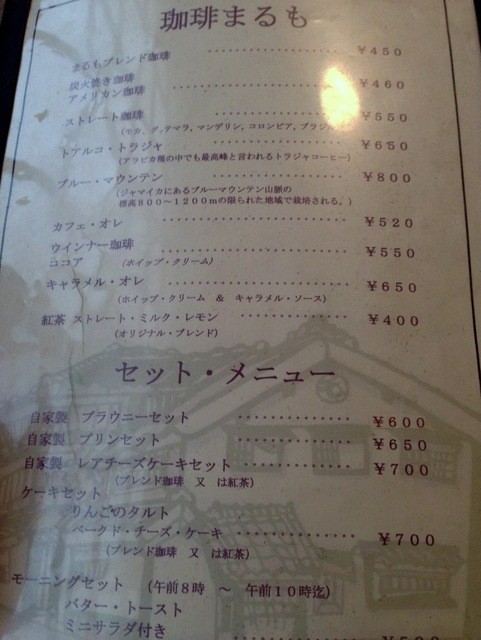 珈琲まるも
まるもブレンド珈琲 ・・・・・・・・・・・・・・・ ￥450
炭火焼き珈琲
アメリカン珈琲 ・・・・・・・・・・・・・・・ ￥460
ストレート珈琲 ・・・・・・・・・・・・・・・ ￥550
(モカ, グァテマラ, マンデリン, コロンビア, ブラジル
トアルコ・トラジャ ・・・・・・・・・・・・・・・ ￥650
(アラビカ種の中でも最高峰と言われるトラジャコーヒー)
ブルー・マウンテン ・・・・・・・・・・・・・・・ ￥800
(ジャマイカにあるブルーマウンテン山脈の
標高800～1200mの限られた地域で栽培される。)
カフェ・オレ ・・・・・・・・・・・・・・・ ￥520
ウインナー珈琲 ・・・・・・・・・・・・・・・ ￥550
ココア (ホイップ・クリーム)
キャラメル・オレ ・・・・・・・・・・・・・・・ ￥650
(ホイップ・クリーム ＆ キャラメル・ソース)
紅茶 ストレート・ミルク・レモン ・・・・・・・・・・ ￥400
(オリジナル・ブレンド)
セット・メニュー
自家製 ブラウニーセット ・・・・・・・・・・ ￥600
自家製 プリンセット ・・・・・・・・・・ ￥650
自家製 レアチーズケーキセット ・・・・・・・・・・ ￥700
(ブレンド珈琲 又 は紅茶)
ケーキセット
りんごのタルト
ベークド・チーズ・ケーキ ・・・・・・・・・・ ￥700
(ブレンド珈琲 又 は紅茶)
モーニングセット (午前8時 ～ 午前10時迄)
バター・トースト
ミニサラダ付き